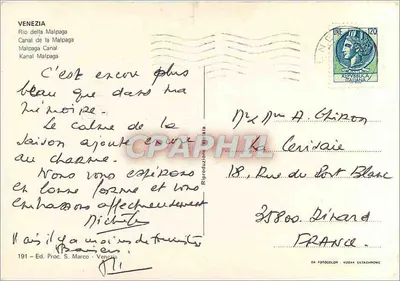 VENEZIA
Rio della Malpaga
Canal de la Malpaga
Malpaga Canal
Kanal Malpaga
C'est encore plus
beau que dans ma
mémoire.
Le calme de la
saison ajoute encore
au charme.
Nous vous espérons
en bonne forme et vous
embrassons affectueusement
Michèle
Mais il y a moins de touristes
Baisers
191 - Ed. Proc. S. Marco - Venezia
Riproduzione vietata
CPAPHIL
120
Mr Mme A. Chiron
La Cerisaie
18, Rue du Port Blanc
35800. Dinard
FRANCE.
DA FOTOCOLOR KODAK EKTACHROME